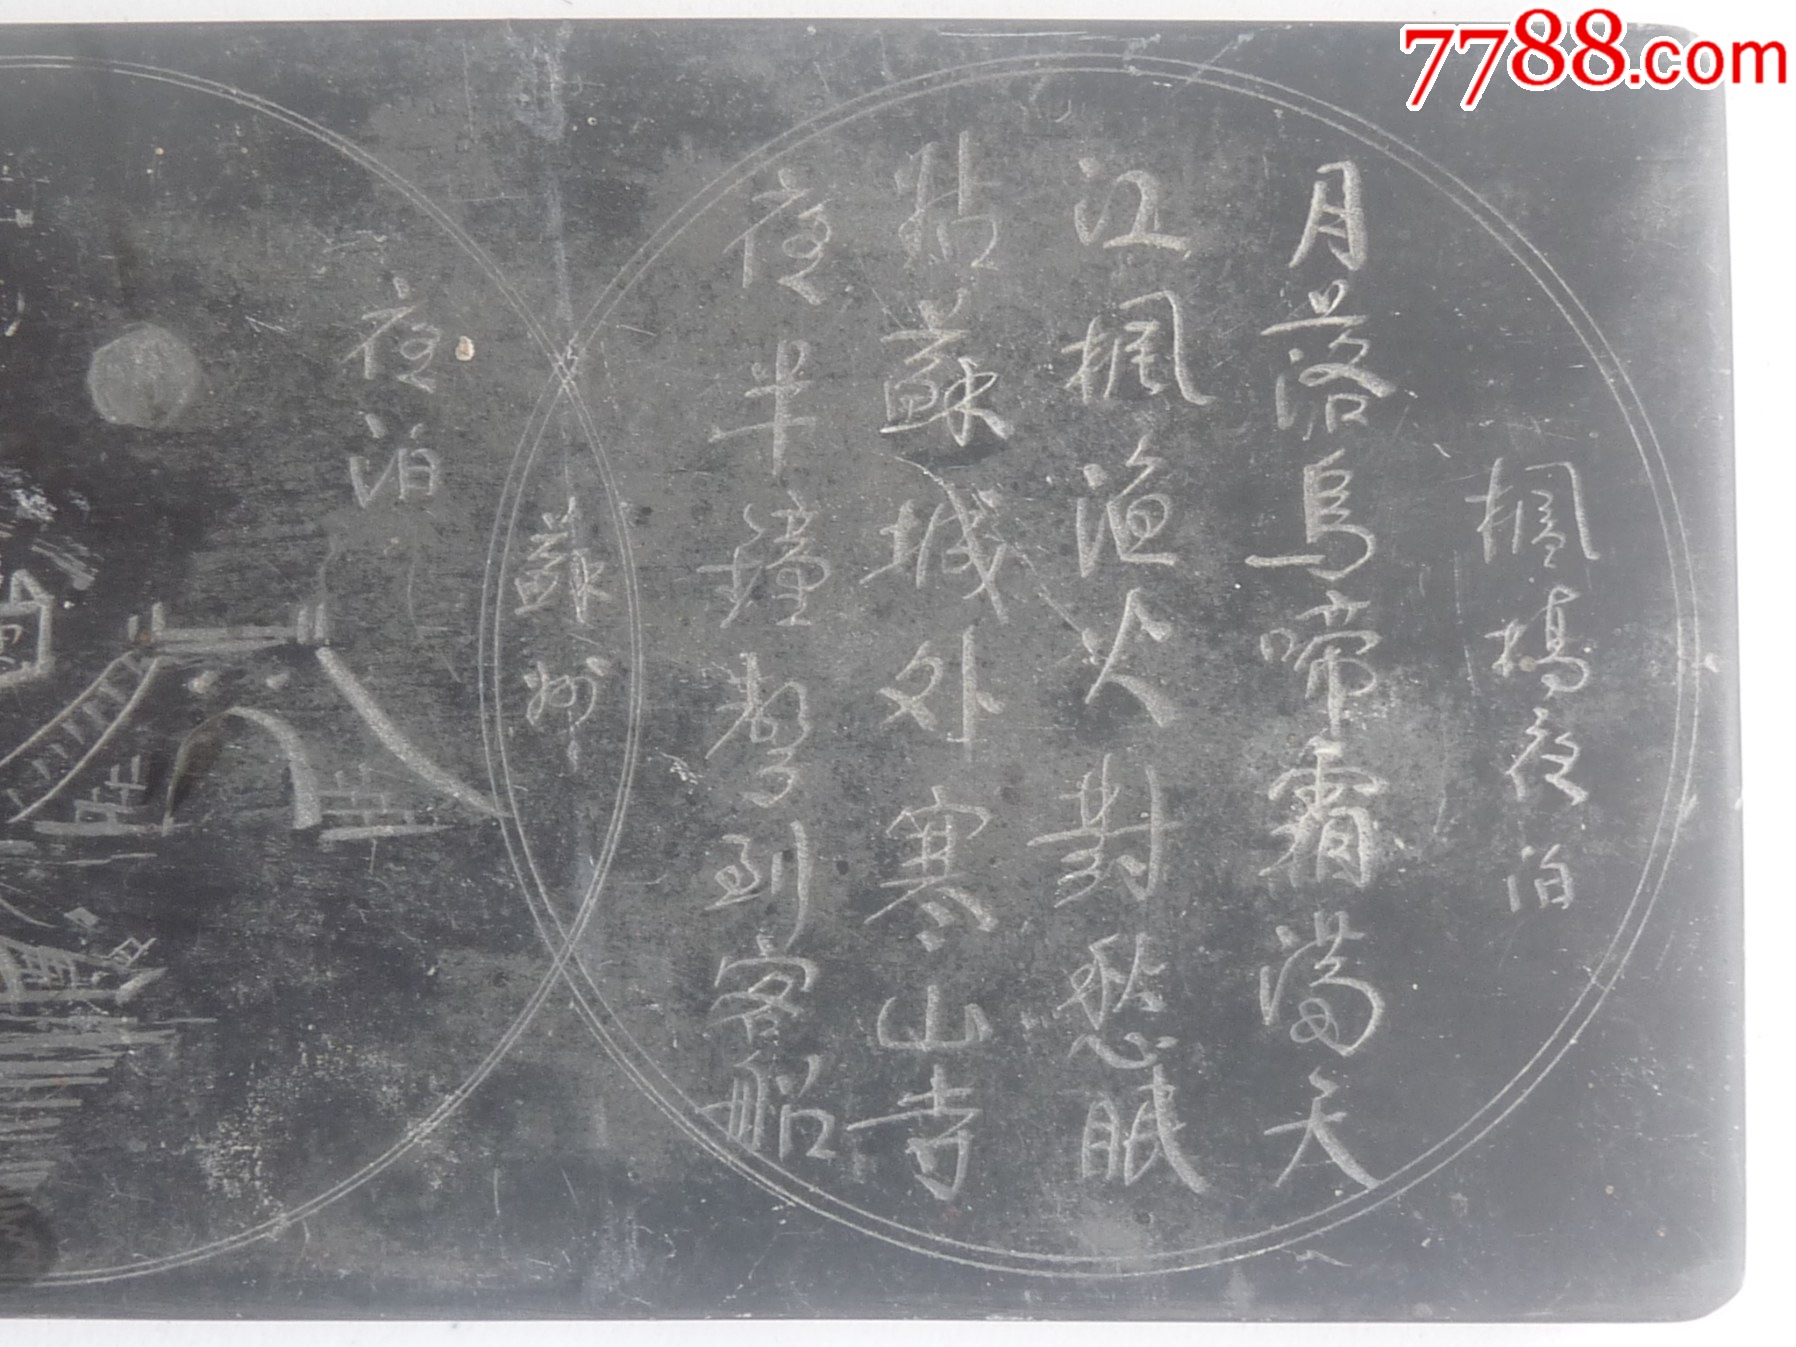 7788.com
楓橋夜泊
月落烏啼霜滿天
江楓漁火對愁眠
姑蘇城外寒山寺
夜半鐘聲到客船
蘇州
夜泊